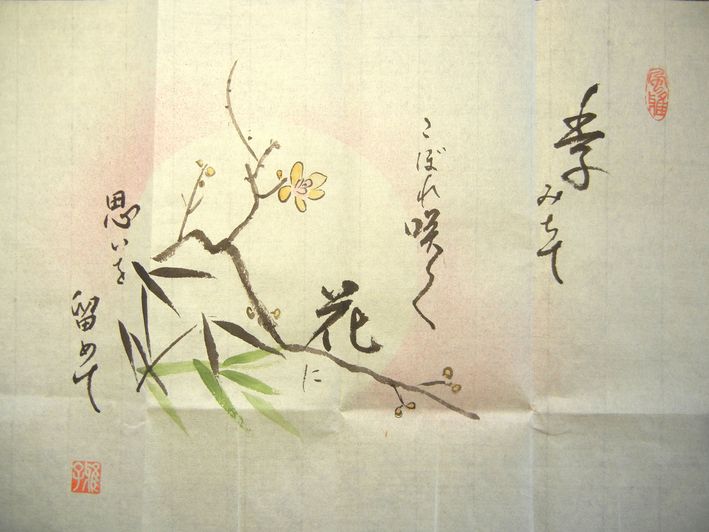 季みちて
こぼれ咲く
花に
思いを
留めて
風雅
雅子